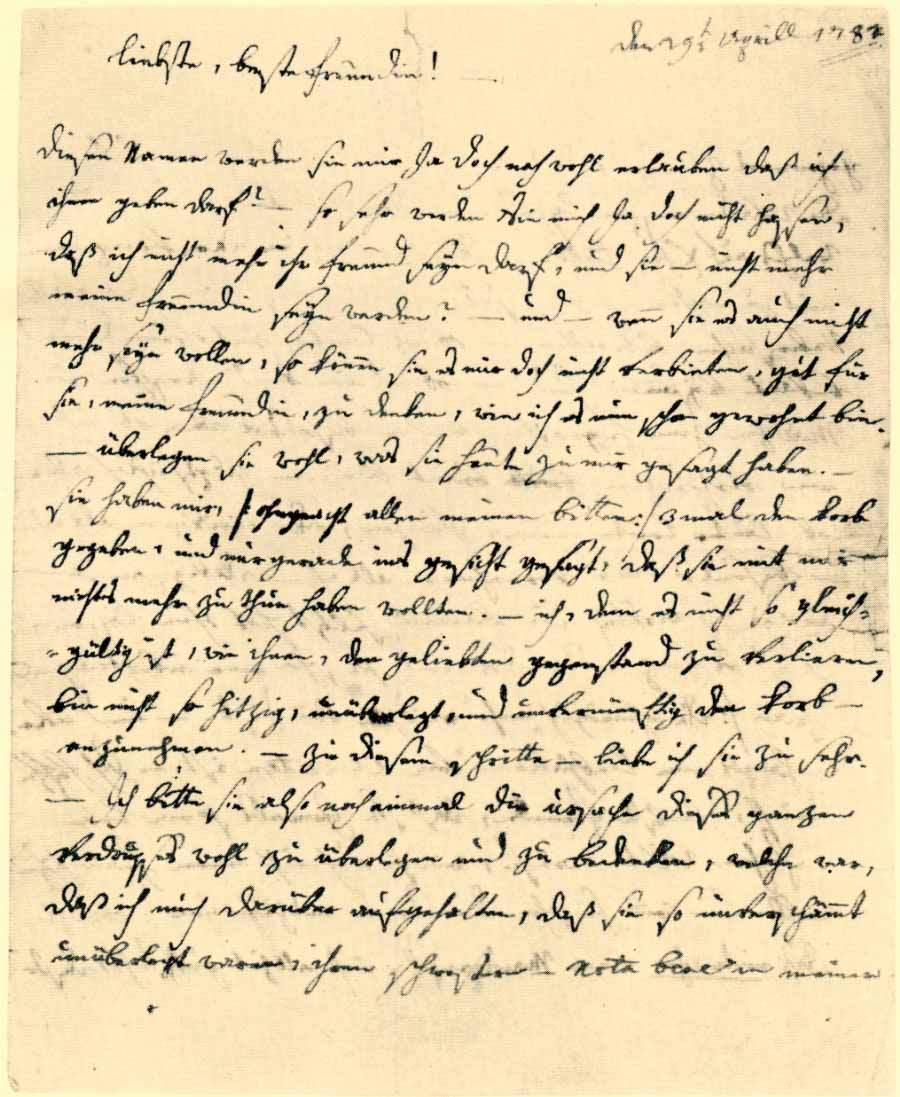 den 29:t April 1782
liebste, beste freundin! —
diesen Namen werden sie mir Ja doch noch wohl erlauben daß ich
ihnen geben darf? — so sehr werden Sie mich Ja doch nicht hassen,
daß ich nicht mehr ihr freund seyn darf, und sie — nicht mehr
meine freundin seyn werden? — und — wenn sie es auch nicht
mehr seyn wollen, so können sie es mir doch nicht verbieten, gut für
sie, meine freundin, zu denken, wie ich es nun schon gewohnt bin.
— überlegen sie wohl, was sie heute zu mir gesagt haben. —
sie haben mir, /: ohngeacht allen meinen bitten :/ 3 mal den korb
gegeben, und mir gerade ins gesicht gesagt, daß sie mit mir
nichts mehr zu thun haben wollten. — ich, dem es nicht so gleich=
=gültig ist, wie ihnen, den geliebten gegenstand zu verlieren,
bin nicht so hitzig, unüberlegt, und unvernünftig den korb —
anzunehmen. — zu diesem schritte — liebe ich sie zu sehr.
— Ich bitte sie also noch einmal die ursache dieses ganzen
verdrusses wohl zu überlegen und zu bedenken, welche war,
daß ich mich darüber aufgehalten, daß sie so unverschämmt
unüberlegt waren, ihren schwestern — Nota bene in meiner